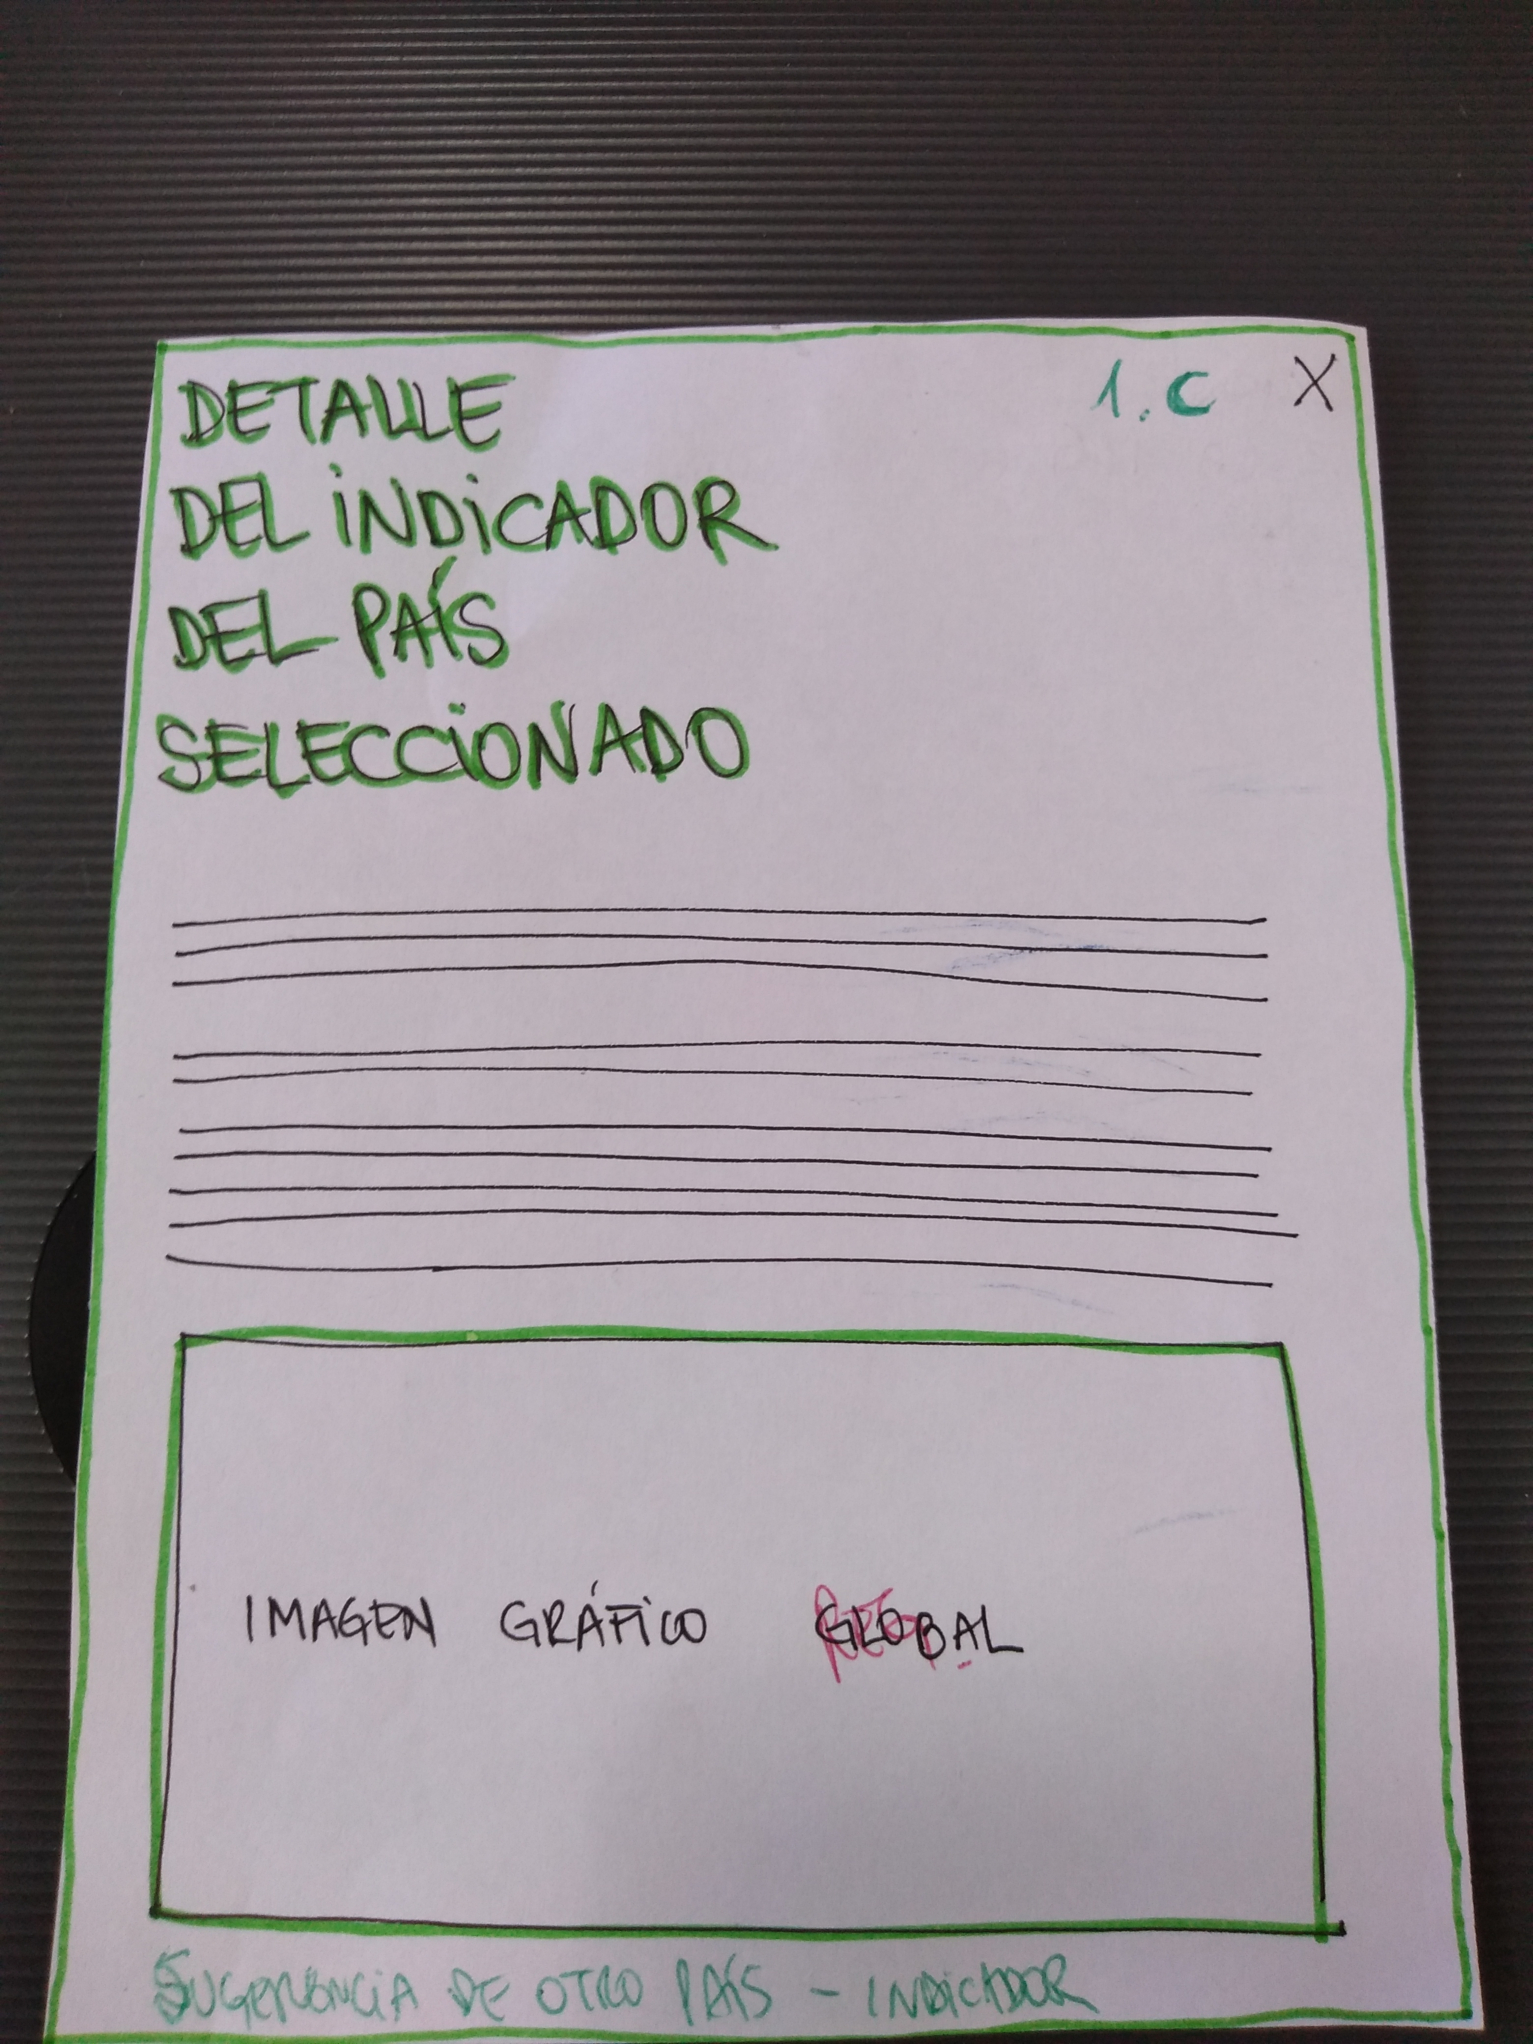 DETALLE 1.C X
DEL INDICADOR
DEL PAÍS
SELECCIONADO
IMAGEN GRÁFICO GLOBAL
SUGERENCIA DE OTRO PAÍS - INDICADOR